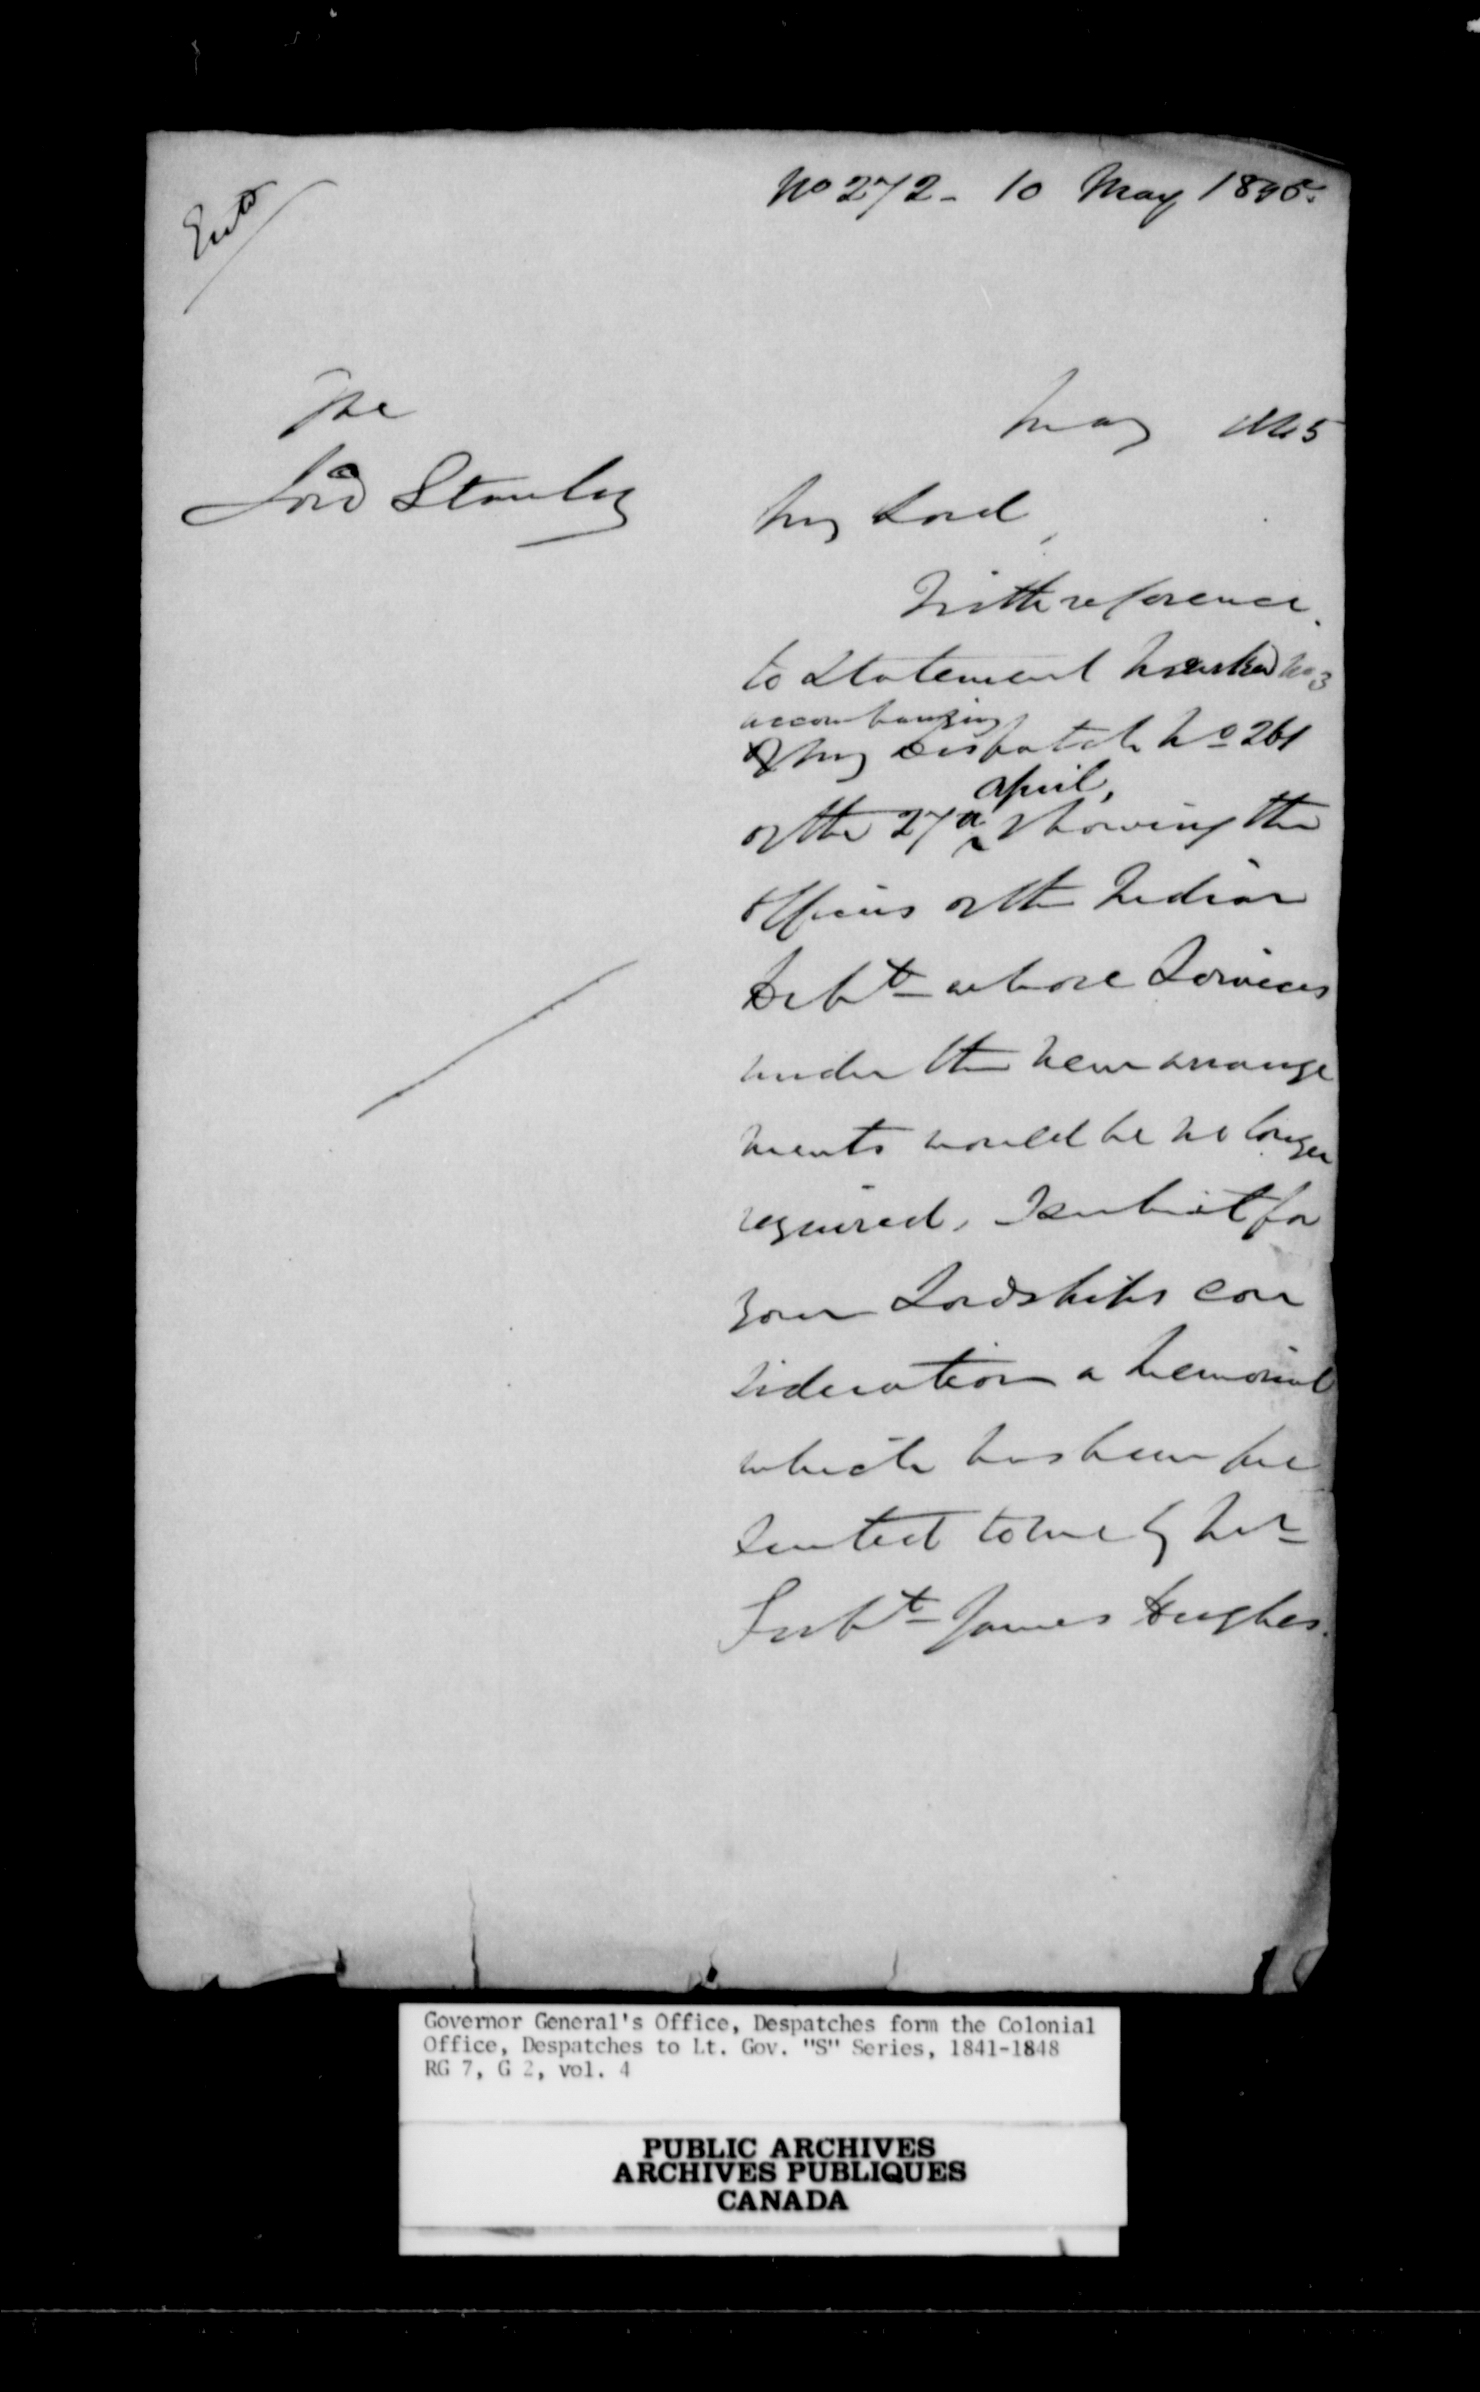 Entd
No 272 - 10 May 1845.
The
Lord Stanley
May 1845
My Lord,
With reference
to Statement marked No 3
accompanying
my Despatch No 261
of the 27th April, showing the
officers of the Indian
Dept whose Services
under the new arrange
ments would be no longer
required, I submit for
your Lordships con
sideration a Memorial
which has been pre
sented to me by Mr
Supt James Hughes.
Governor General's Office, Despatches form the Colonial
Office, Despatches to Lt. Gov. "S" Series, 1841-1848
RG 7, G 2, vol. 4
PUBLIC ARCHIVES
ARCHIVES PUBLIQUES
CANADA